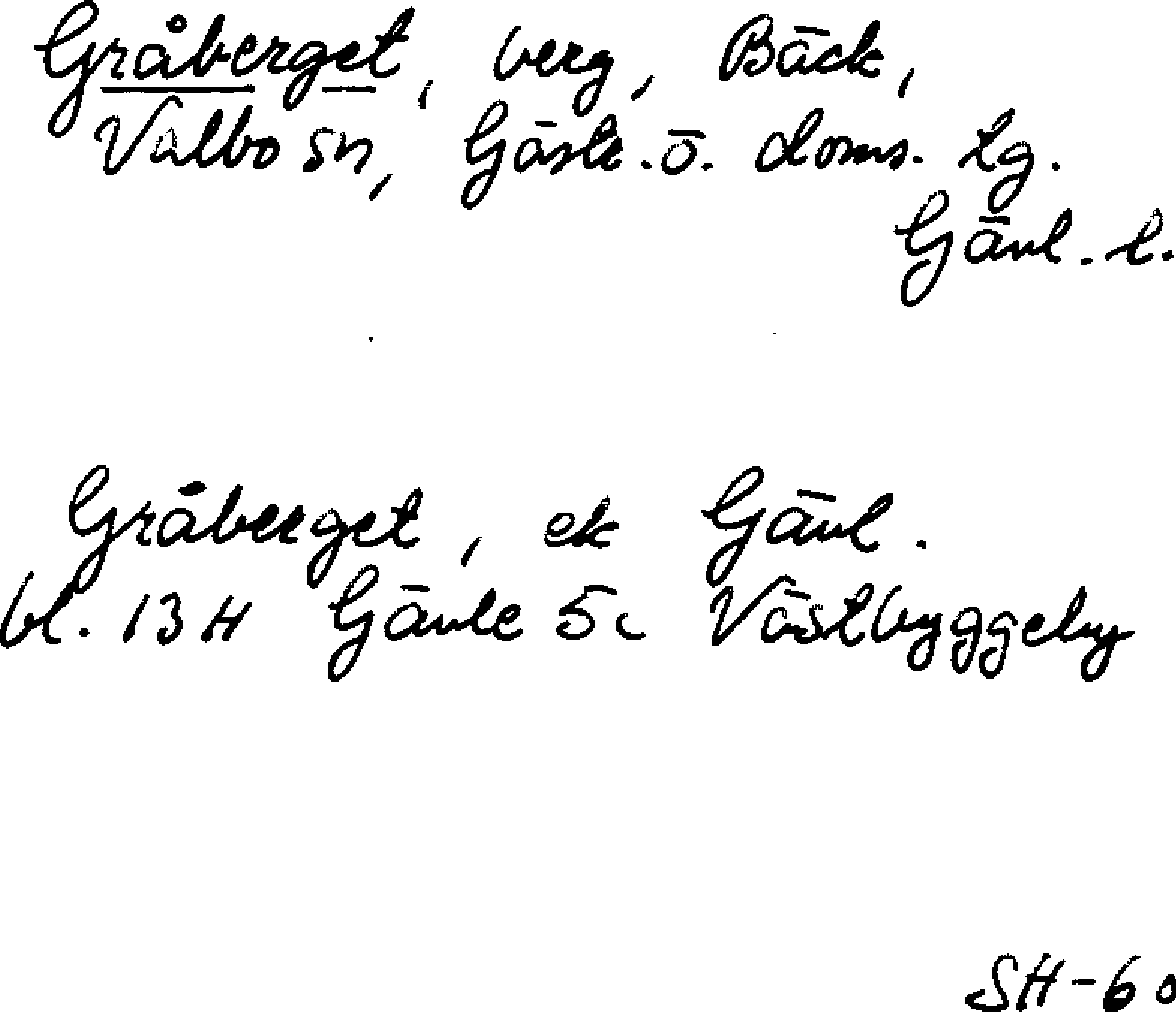 Gråberget, berg, Bäck,
Valbo sn, Gästr. ö. doms. tg.
Gävl. l.
Gråberget, ek Gävl.
bl. 13 H Gävle 5 c Västbyggeby
SH-60